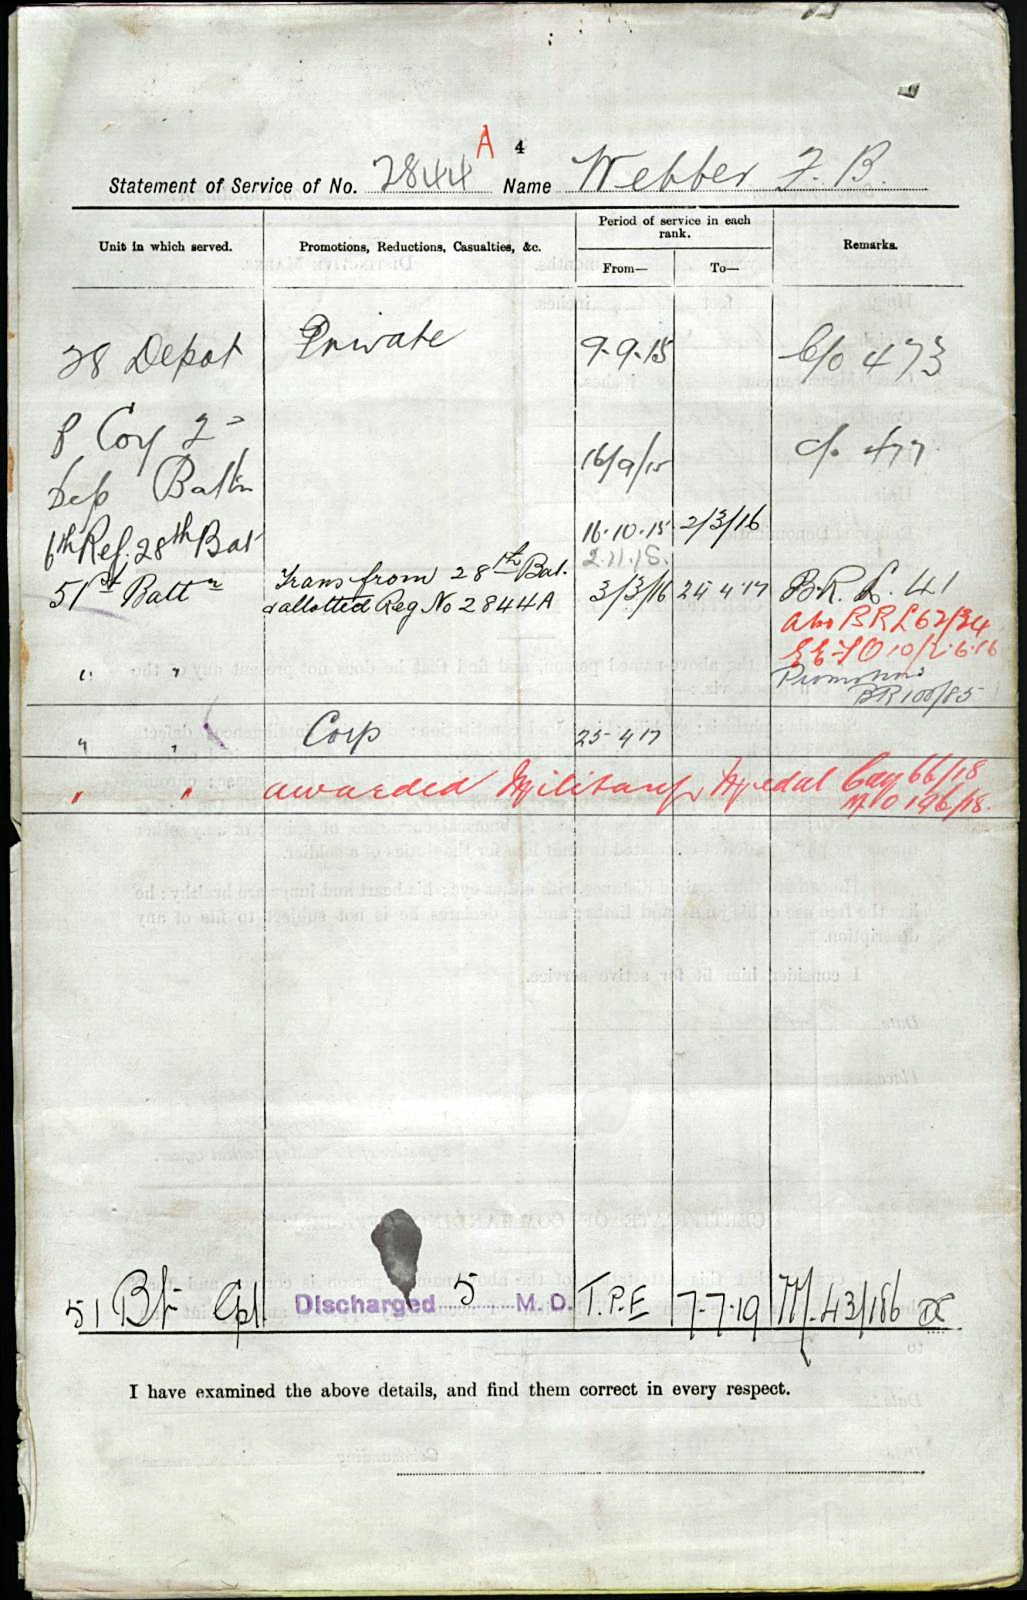 A 4
Statement of Service of No. 2844 Name Webber F. B.
Unit in which served. Promotions, Reductions, Casualties, &c. Period of service in each rank. Remarks.
From— To—
28 Depot Private 9.9.15 C/o 473
F Coy 2
Dep Battn 16/9/15 C/o 477
6th Ref. 28th Bat 16.10.15 2/3/16
2.11.15.
51st Battn Trans from 28th Bat. 3/3/16 24 4 17 B.R. L. 41
& allotted Reg No 2844A
also BRL 62/34
10/2.6.16
" " Promotions
BR 100/85
" " Corp 25 4 17
" " awarded Military Medal Cag 66/18
MO 196/18.
51 Bt Cpl. Discharged 5 M. D. T.P.E 7.7.19 M. 43/186
I have examined the above details, and find them correct in every respect.